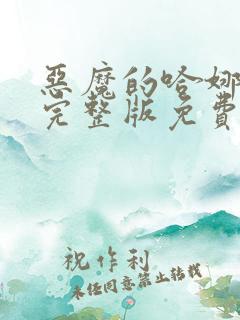 惡魔的哈娜
完整版免費
祝作利
未经同意禁止转载